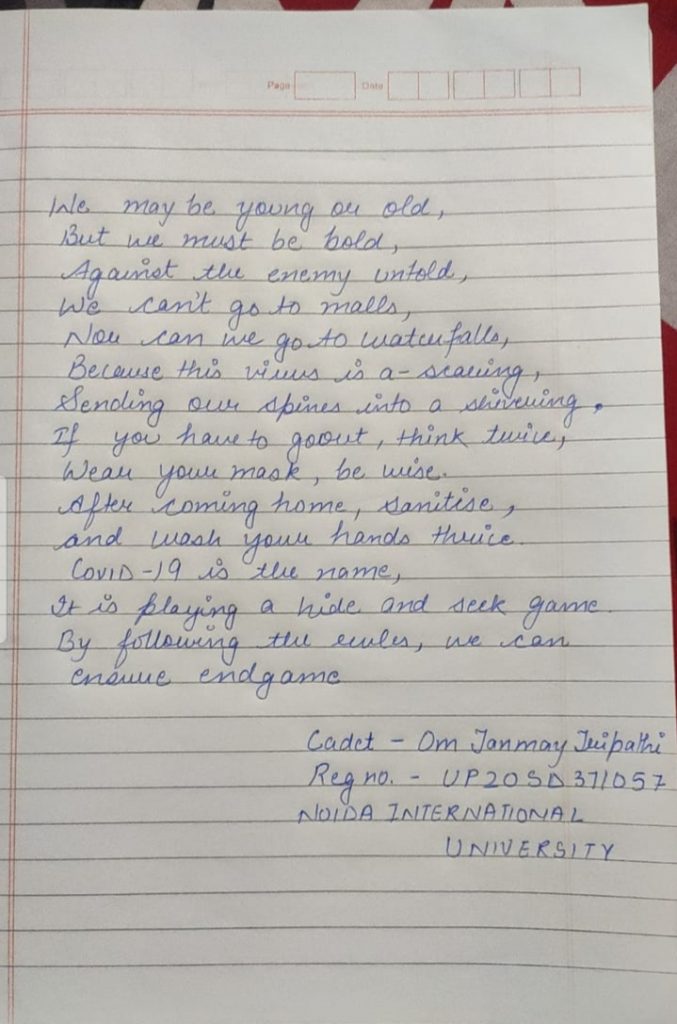 Page
Date
We may be young or old,
But we must be bold,
Against the enemy untold,
We can't go to malls,
Nor can we go to waterfalls,
Because this virus is a-scaring,
Sending our spines into a shivering.
If you have to goout, think twice,
Wear your mask, be wise.
After coming home, sanitise,
and wash your hands thrice.
COVID-19 is the name,
It is playing a hide and seek game.
By following the rules, we can
ensure endgame
Cadet - Om Tanmay Tripathi
Reg no. - UP20SD371057
NOIDA INTERNATIONAL
UNIVERSITY